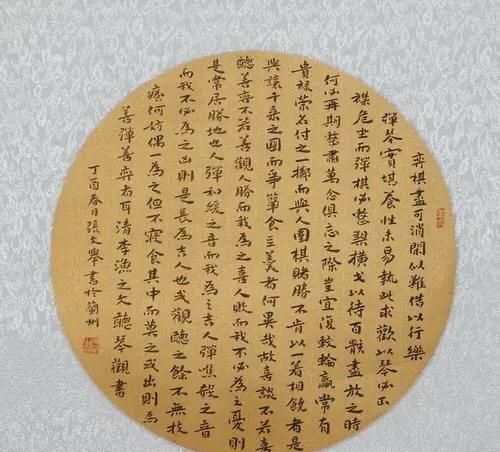 弈棋盡可消閑似難借以行樂
彈琴實堪養性未易執此求歡以琴必正
襟危坐而彈棋必整槊橫戈以待百骸盡放之時
何必再期整肅萬念俱忘之際豈宜復較輸贏常有
貴祿榮名付之一擲而與人圍棋賭勝不肯以一着相饒者是
與讓千乘之國而爭簞食豆羹者何異哉故喜談不若喜
聽善弈不若善觀人勝而我為之喜人敗而我不必為之憂則
是常居勝地也人彈和緩之音而我為之吉人彈噍殺之音
而我不必為之凶則是長為吉人也或觀聽之餘不無技
癢何妨偶一為之但不寢食其中而莫之或出則為
善彈善弈者耳清李漁之文聽琴觀書
丁酉春日張文舉書於蘭州